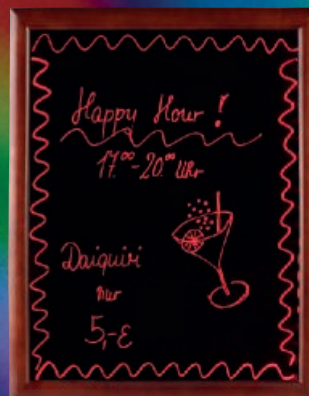 Happy Hour!
17.⁰⁰-20.⁰⁰ Uhr
Daiquiri
nur
5,-€